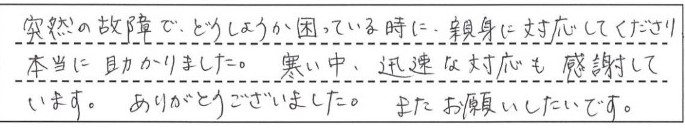 突然の故障で、どうしようか困っている時に、親身に対応してくださり
本当に助かりました。 寒い中、迅速な対応も感謝して
います。 ありがとうございました。 またお願いしたいです。